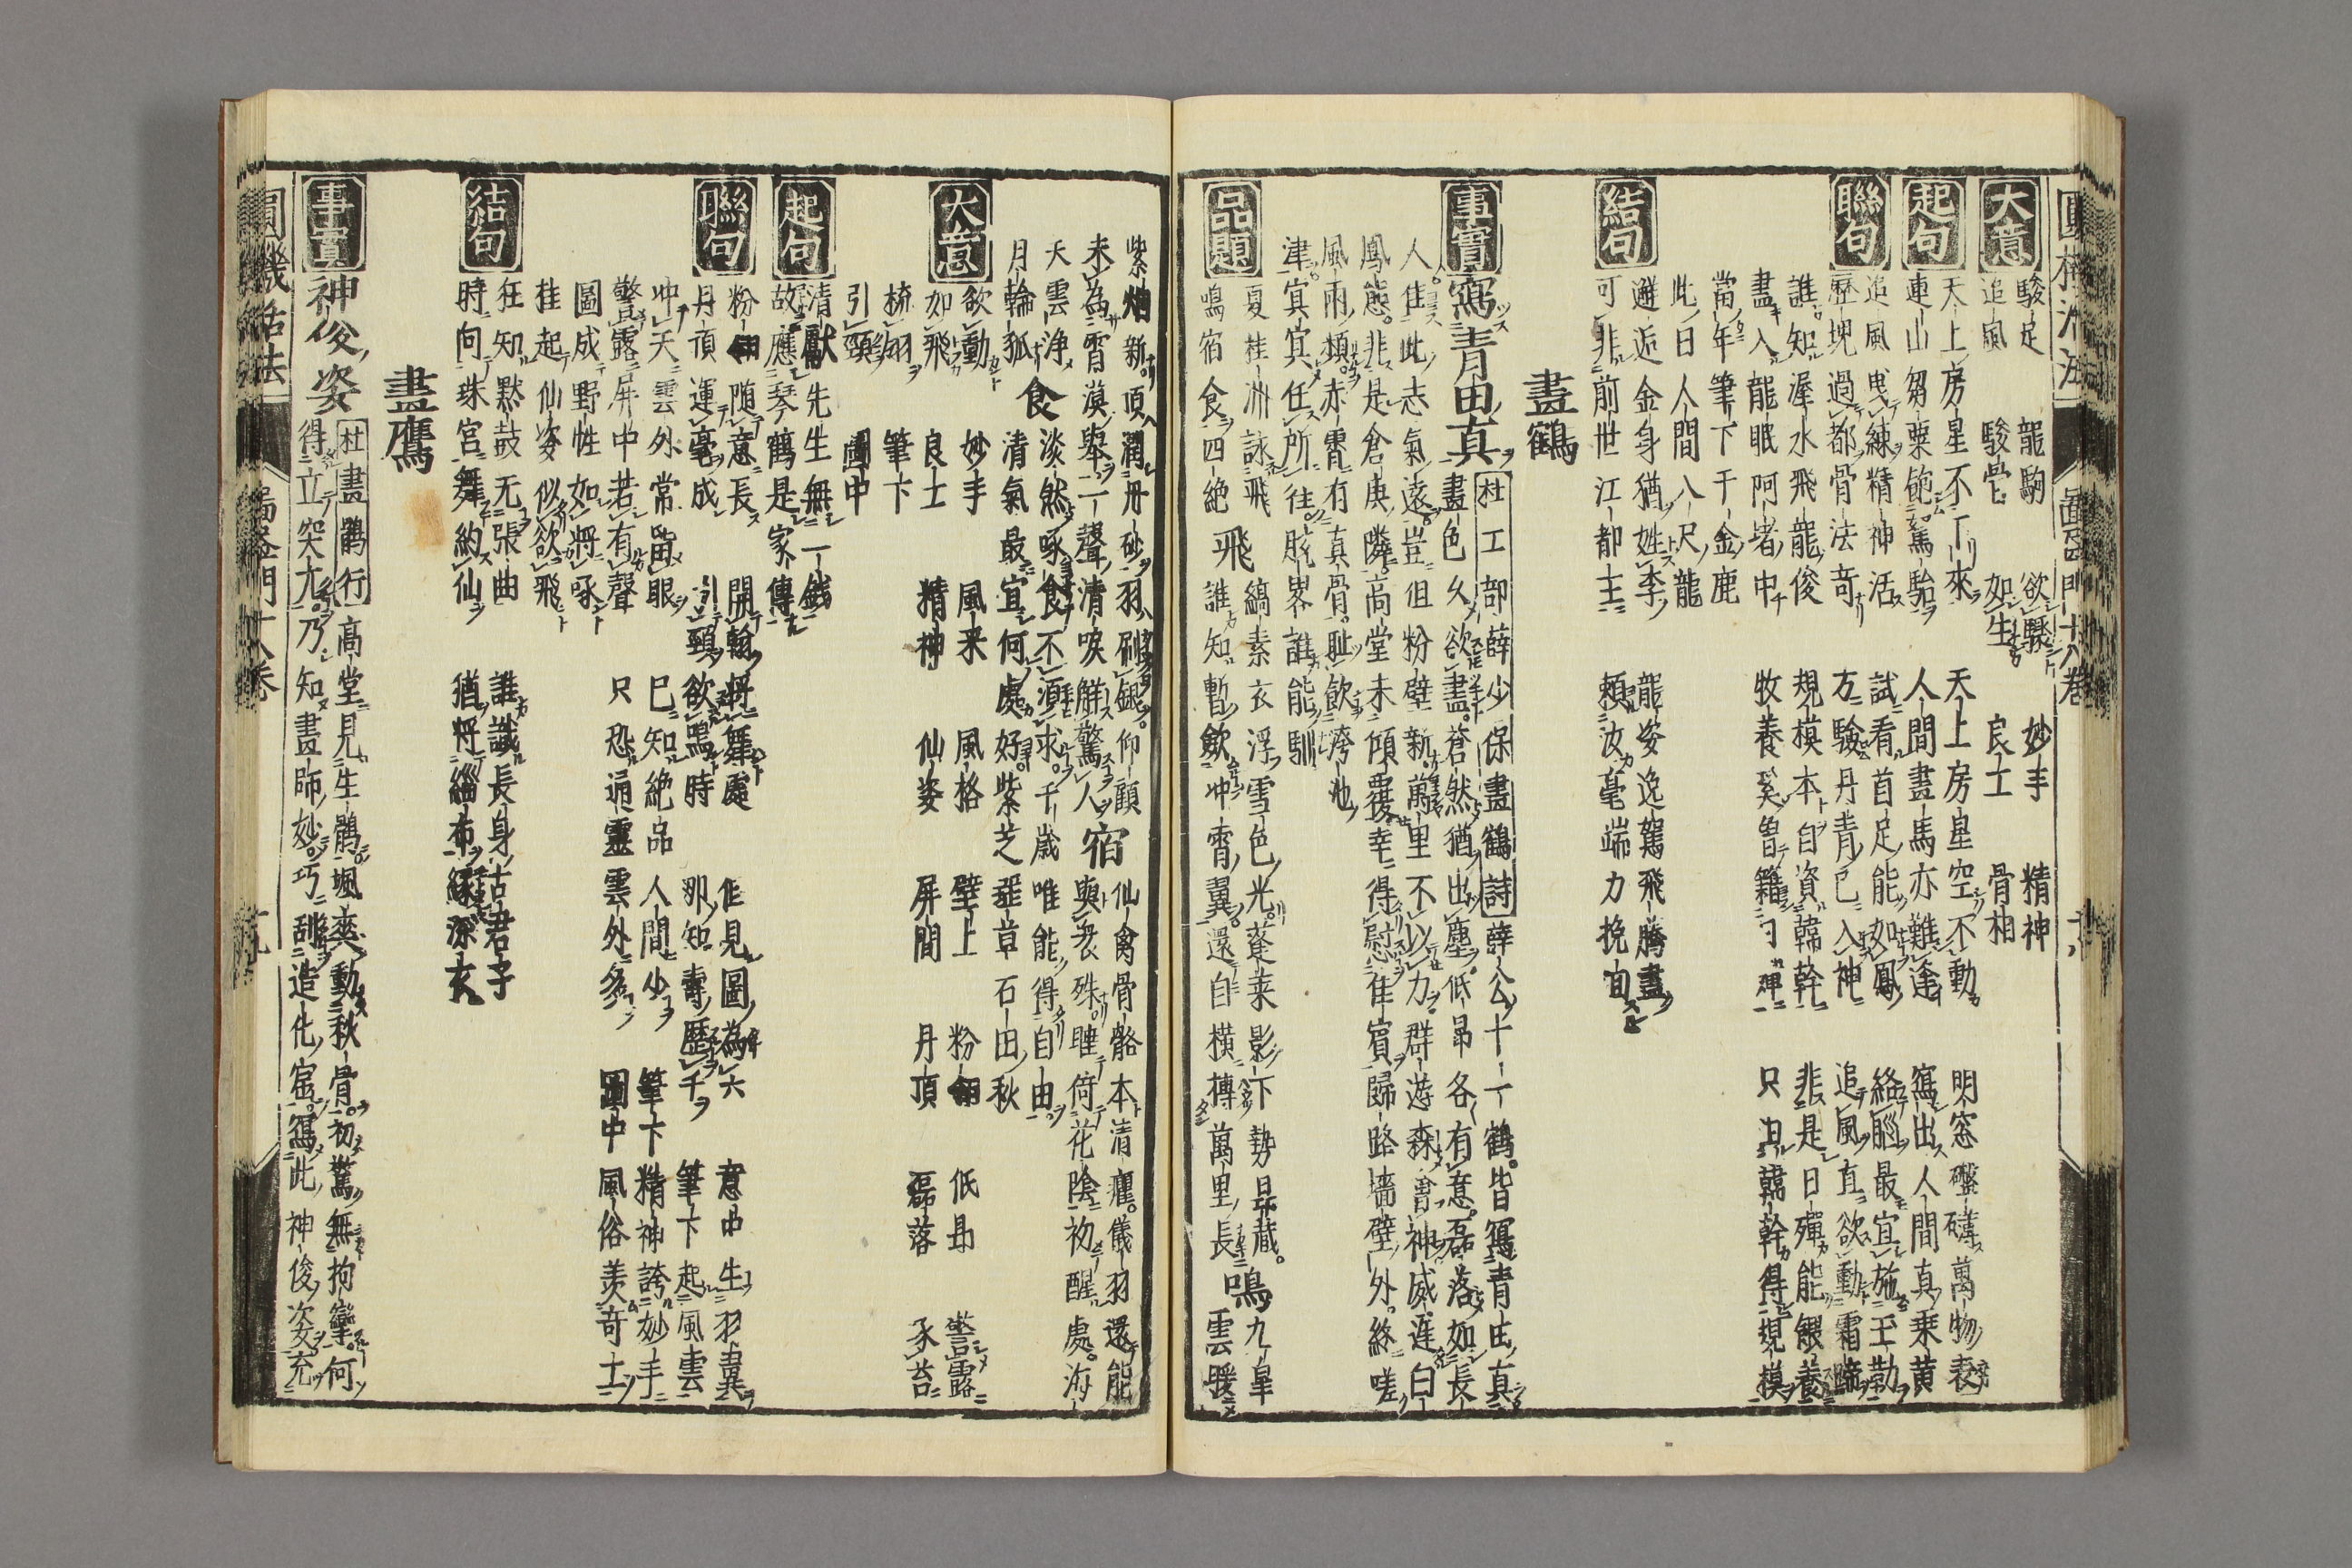 大意
駿足 龍駒 欲驟 妙手 精神
追風 駿骨 如生 良士 骨相
起句
天上房星不下來 天上房星空不動 明窓礬礴萬物表
連山芻粟飽駑駘 人間畫馬亦難逢 寫出人間真乗黄
聯句
追風曳練精神活 試看首足能如鳳 絡腦最宜施玉勒
歷塊過都骨法奇 方驗丹青已入神 追風直欲動霜蹄
誰知渥水飛龍俊 規模本自資韓幹 非是日殫能餵養
畫入龍眠阿堵中 牧養奚曽籍 只由韓幹得規模
當年筆下千金鹿
此日人間八尺龍
結句
邂逅金身猶姓李 龍姿逸駕飛騰盡
可非前世江都王 頼汝毫端力挽回
畫鶴
事實
寫青田真 杜工部薛少保畫鶴詩 薛公十一鶴皆寫青田真
畫色久欲盡蒼然猶出塵低昻各有意磊落如長
人佳此志氣遠豈但粉壁新萬里不以力群遊森會神威遲白
鳳態非是倉庚隣高堂未傾覆幸得慰佳賓歸路墻壁外終嗟
風雨頻赤霄有真骨耻飲洿池
津冥冥任所往脱畧誰能馴
品題
夏桂洲詠飛 縞素衣浮雪色光蓬莱影下勢昻藏 鳴 九皐
鳴宿食四絶 飛 誰知暫歛冲霄翼還自橫搏萬里長 雲暖
紫烟新頂潤丹砂羽刷銀仰顧 仙禽骨骼本清癯儀羽還能
未為霄漢舉一聲清唳觧驚人 宿 與衆殊睡倚花陰初醒處海
天雲浄 食 淡然啄食不湏求千歳唯能得自由
月輪孤 清氣最宜何處好紫芝 章石田秋
大意
欲動 妙手 風采 風格 壁上 粉翎 低昻 警露
如飛 良士 精神 仙姿 屏間 丹頂 磊落 啄苔
梳翎 筆下
引頸 圖中
起句
清獻先生無一錢
故應琴鶴是家傳
聯句
粉翎随意長 開翰將舞處 乍見圖為六 意中生羽翼
丹頂運毫成 引頸欲鳴時 那知壽歷千 筆下起風雲
冲天雲外常留眼 已知絶品人間少 筆下精神誇妙手
警露屏中若有聲 只恐通靈雲外多 圖中風俗羨奇士
圖成野性如將啄
桂起仙姿似欲飛
結句
狂知黙鼓无張曲 誰識長身古君子
時向珠宮舞約仙 猶將緇布緣深衣
畫鷹
事實
神俊姿 杜畫鶻行 高堂見生鶻颯爽動秋骨初驚無拘攣何
得立突兀乃知畫師妙巧刮造化窟寫此神俊姿充